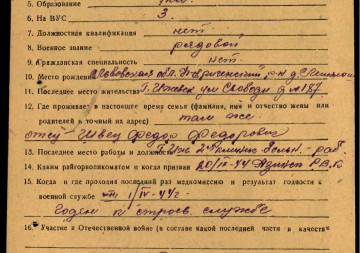 5. Образование
6. На ВУС 3.
7. Должностная квалификация нет
8. Военное звание рядовой
9. Гражданская специальность нет
10. Место рождения
11. Последнее место жительства г. Ижевск ул Свободы д №187
12. Где проживает в настоящее время семья (фамилия, имя и отчество жены или
родителей и точный их адрес) там же
отец Швец Федор Федорович
13. Последнее место работы и должность
14. Каким райгорвоенкоматом и когда призван 20/IV-44 Азинск Р.В.К
15. Когда и где проходил последний раз медкомиссию и результат годности к
военной службе 1/IV-44 г.
Годен к строев. службе
16. Участие в Отечественной войне (в составе какой последней части и в качестве